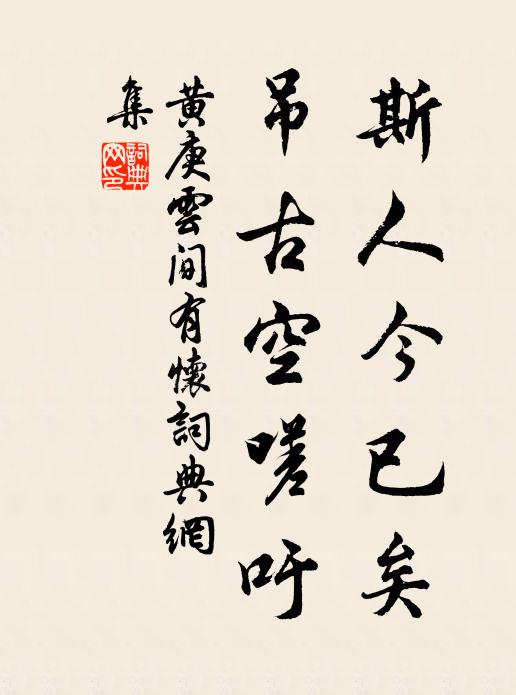 斯人今已矣
吊古空嗟吁
黄庚雲间有懷詞典網
集
詞典網印